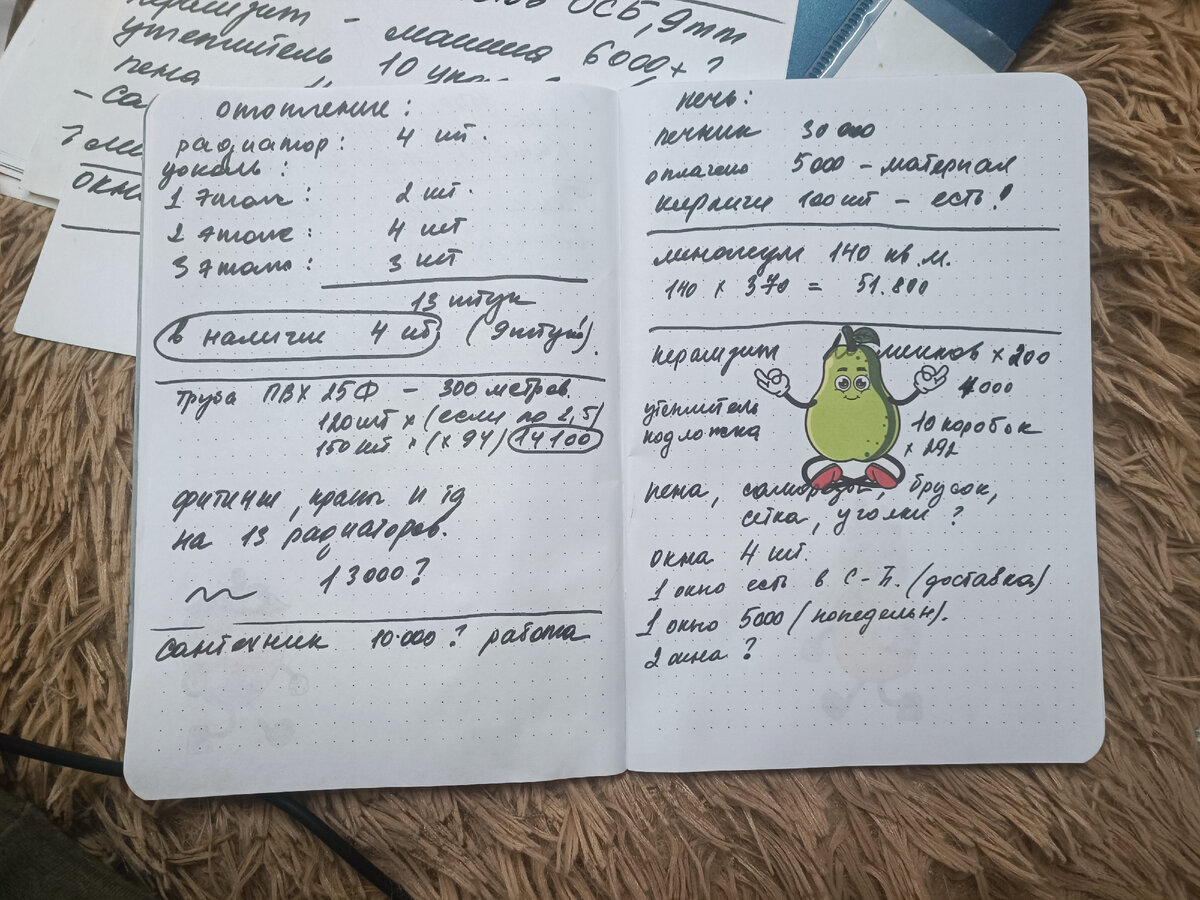 ОСБ, 9mm
керамзит - машина 6000 + ?
утеплитель 10 упк
пена
- са
окна
отопление:
радиатор: 4 шт.
цоколь:
1 этаж: 2 шт.
2 этаж: 4 шт
3 этаж: 3 шт
13 штук
в наличие 4 шт (9штук).
труба ПВХ 25Ф - 300 метров.
120шт х (если по 2,5)
150 шт х (х 94) 14100
фитинги, краны и тд
на 13 радиаторов.
13000?
сантехник 10.000? работа
печь:
печник 30 000
оплачено 5000 - материал
кирпичи 100 шт - есть!
линолеум 140 кв.м.
140 х 370 = 51.800
керамзит мешков х 200
4000
утеплитель 10 коробок
подложка х 292
пена, саморезы, брусок,
сетка, уголки?
окна 4 шт.
1 окно есть в С-П. (доставка)
1 окно 5000 (понедельн).
2 окна ?